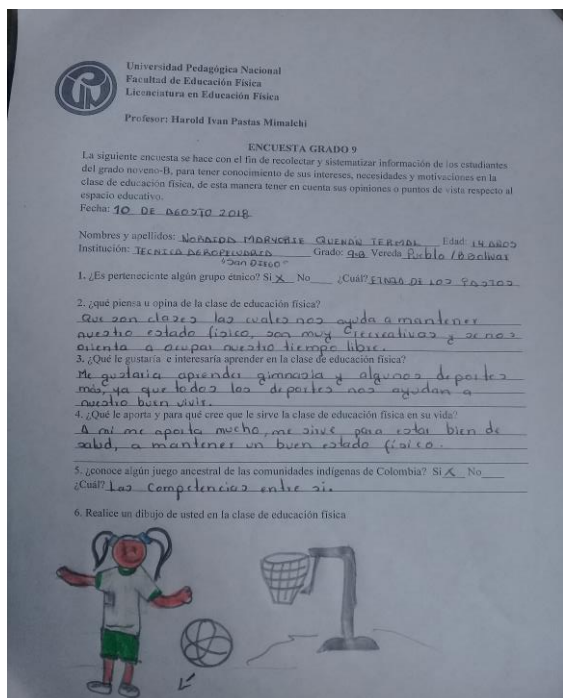 Universidad Pedagógica Nacional
Facultad de Educación Física
Licenciatura en Educación Física
Profesor: Harold Ivan Pastas Mimalchi
ENCUESTA GRADO 9
La siguiente encuesta se hace con el fin de recolectar y sistematizar información de los estudiantes
del grado noveno-B, para tener conocimiento de sus intereses, necesidades y motivaciones en la
clase de educación física, de esta manera tener en cuenta sus opiniones o puntos de vista respecto al
espacio educativo.
Fecha: 10 DE AGOSTO 2018
Nombres y apellidos: MARYORIE QUENÁN TERMAL Edad: 14 AÑOS
Institución: TECNICA AGROPECUARIA Grado: Vereda Pueblo / Bolivar
"San DIEGO"
1. ¿Es perteneciente algún grupo étnico? Si X No ¿Cuál? ETNIA DE LOS PASTOS
2. ¿qué piensa u opina de la clase de educación física?
Que son clases las cuales nos ayuda a mantener
nuestro estado físico, son muy recreativas y se nos
orienta a ocupar nuestro tiempo libre.
3. ¿Qué le gustaría e interesaría aprender en la clase de educación física?
Me gustaría aprender gimnasia y algunos deportes
más, ya que todos los deportes nos ayudan a
nuestro buen vivir.
4. ¿Qué le aporta y para qué cree que le sirve la clase de educación física en su vida?
A mi me aporta mucho, me sirve para estar bien de
salud, a mantener un buen estado físico.
5. ¿conoce algún juego ancestral de las comunidades indígenas de Colombia? Si X No
¿Cuál? Las Competencias entre si.
6. Realice un dibujo de usted en la clase de educación física